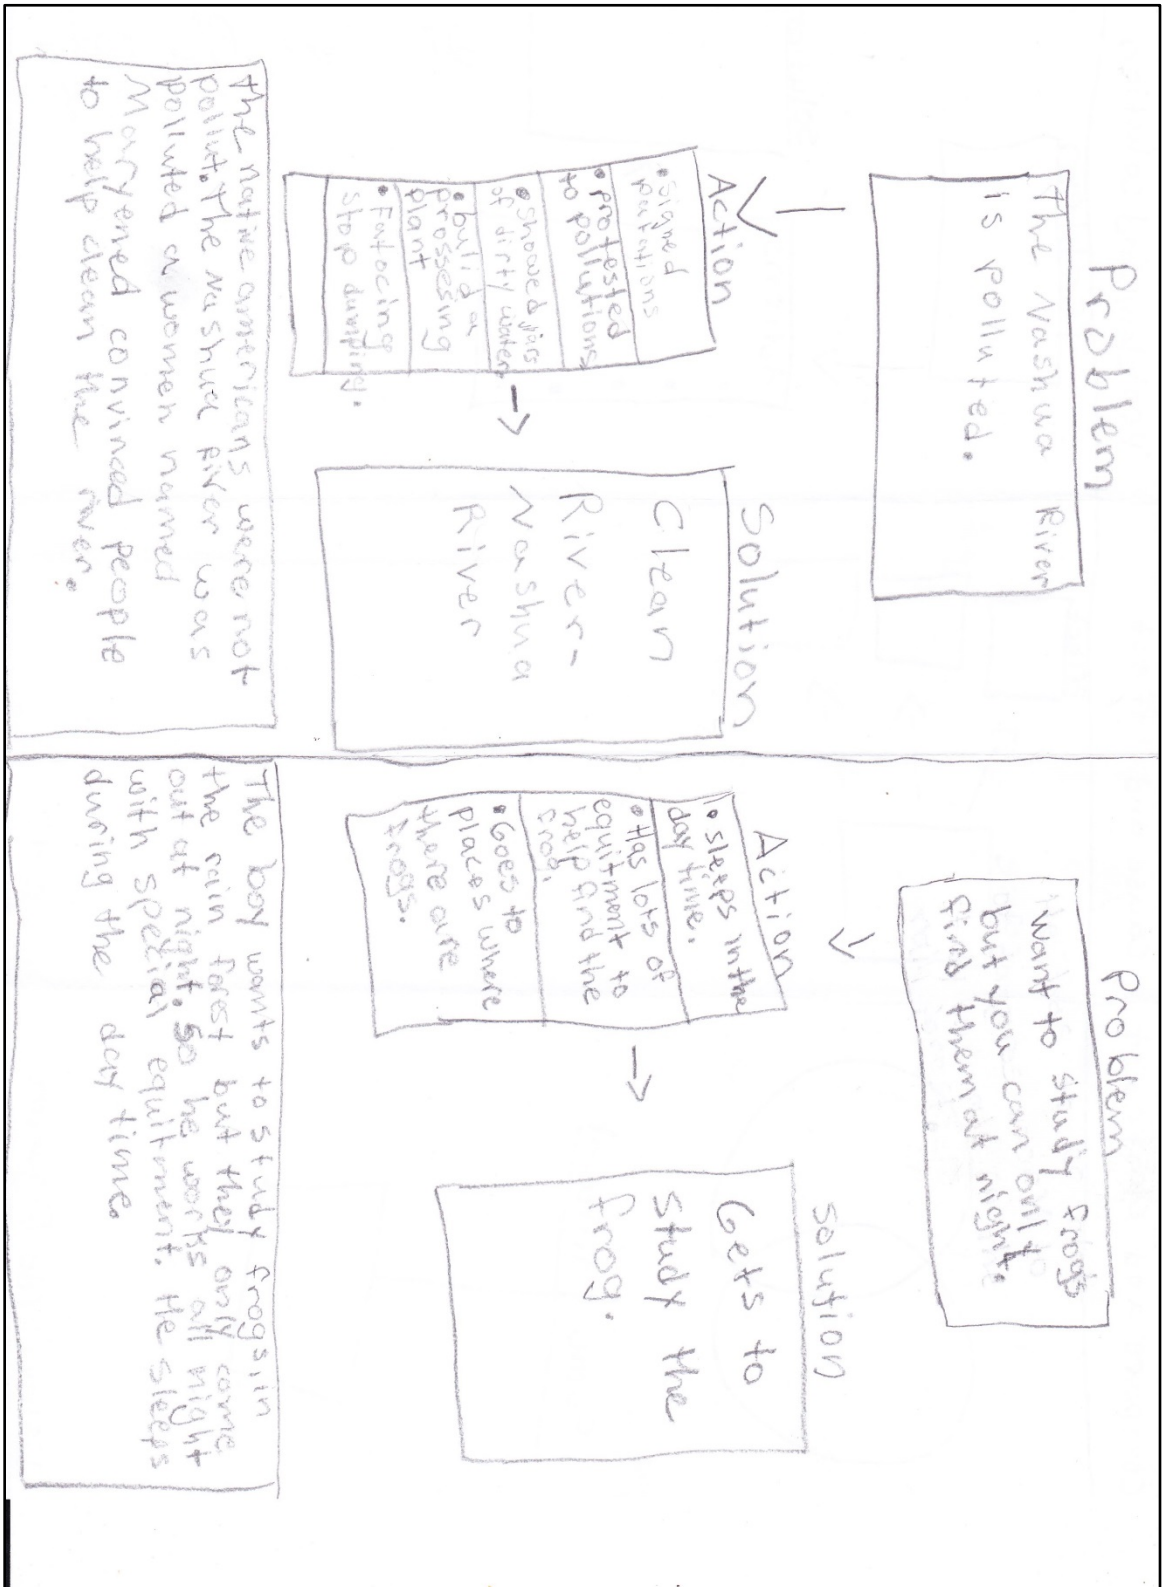 Problem
The Nashua River
is polluted.
Action
• Signed
petutions
• protested
to pollutions
• showed jars
of dirty waters
• build a
prossesing
plant
• Fatocing
stop dumping.
Solution
Clean
River-
Nashua
River
The native americans were not
pollut. The Nashua River was
polluted a women named
Maryened convinced people
to help clean the river.
Problem
I want to study frogs
but you can only
find them at night.
Action
• sleeps in the
day time.
• Has lots of
equitment to
help find the
frog.
• Goes to
places where
there are
frogs.
solution
Gets to
study the
frog.
The boy wants to study frogs in
the rain forest but they only come
out at night. So he works all night
with special equitment. He sleeps
during the day time.